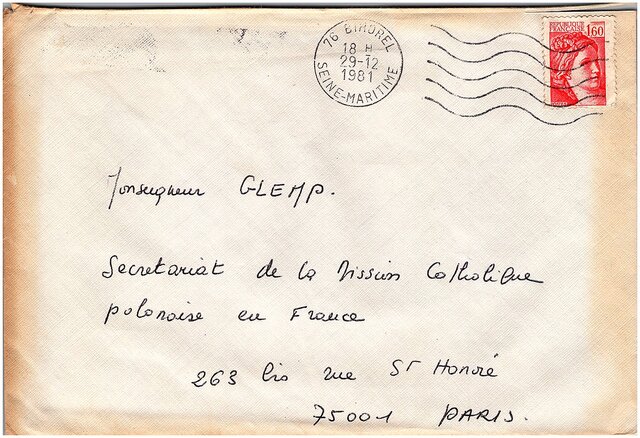 76 BIHOREL
18 H
29-12
1981
SEINE-MARITIME
REPUBLIQUE
FRANCAISE
1,60
Monseigneur GLEMP.
Secretariat de la Mission Catholique
polonaise en France
263 bis rue St Honoré
75001 PARIS.